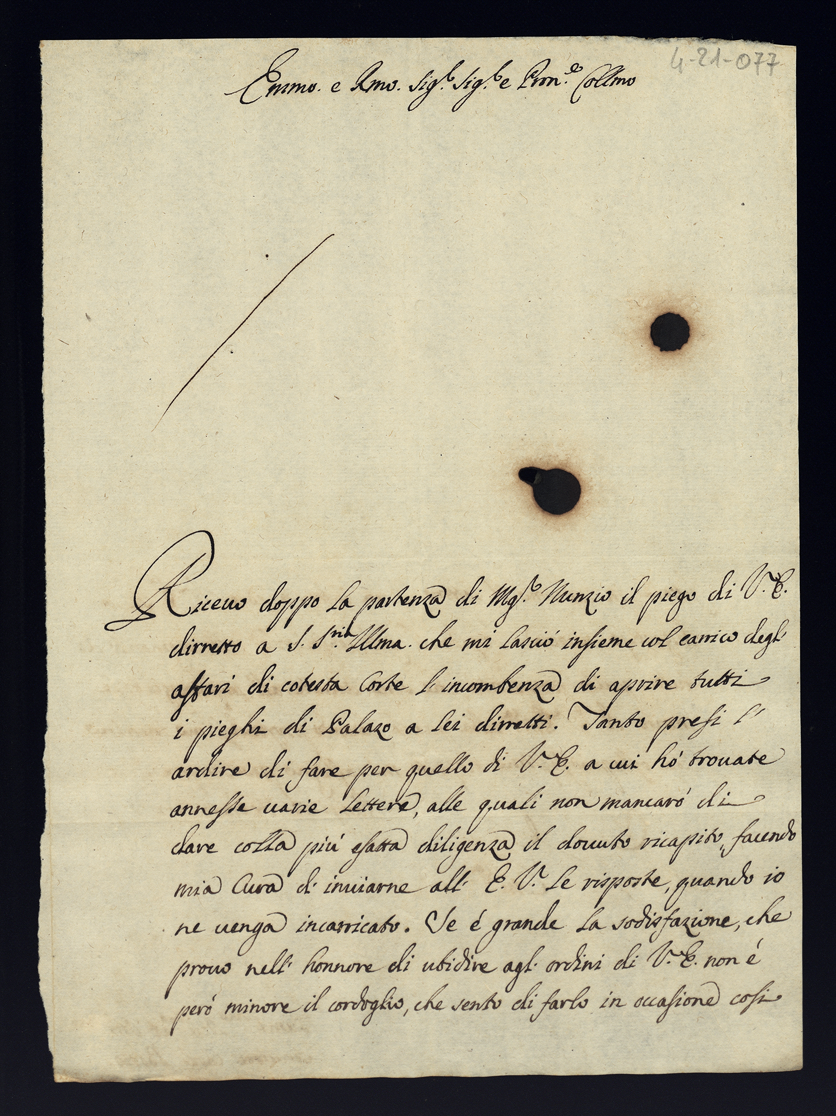 4-21-077
Emmo. e Rmo. Sigr. Sigr. e Pron.e Collmo
Riceuo doppo la partenza di Mgr. Nunzio il piego di V. E.
dirretto a S. Sria Illma. che mi lasció insieme col carrico degl'
affari di cotesta Corte l'incombenza di aprire tutti
i pieghi di Palazo a lei dirretti. Tanto presi l'
ardire di fare per quello di V. E. a cui hó trouate
annesse uarie lettere, alle quali non mancaró di
dare colla piú esatta diligenza il douuto ricapito, facendo
mia Cura di inuiarne all' E. V. le risposte, quando io
ne uenga incarricato. Se é grande la sodisfazione, che
prouo nell' honnore di ubidire agl' ordini di V. E. non é
peró minore il cordoglio, che sento di farlo in occasione cosi